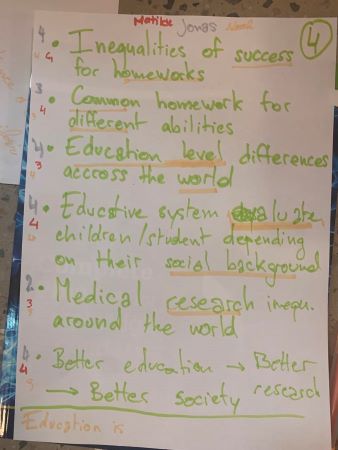 Matilde Jonas Noah
4
4 4 • Inequalities of success
for homeworks
3 4 • Common homework for
different abilities
4 3 • Education level differences
accross the world
4 4 • Educative system evaluate
children/student depending
on their social background
2 3 • Medical research inequ.
around the world
4 4 • Better education → Better
research
→ Better society
Education is